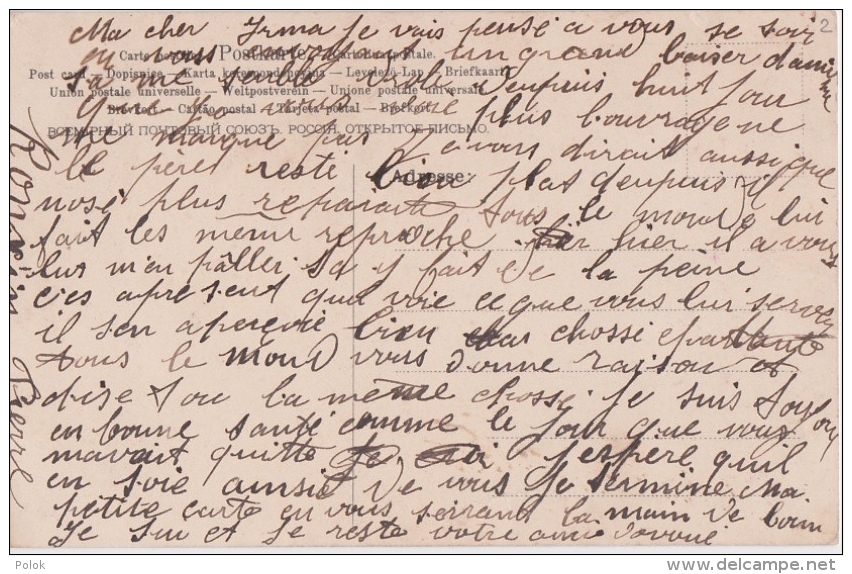 2
Ma cher Irma Je vais pensé a vous se soir
en vous envoyant un grand baiser d'ami
Carte postale — Postkarte — Cartolina postale.
Post card — Dopisnice — Karta korespondencyjna — Levelező-Lap — Briefkaart
Union postale universelle — Weltpostverein — Unione postale universale
depuis huit jour
Brevkort — Cartão postal — Tarjeta postal — Brefkort
que je vous plus l'ouvrage ne
ВСЕМІРНЫЙ ПОЧТОВЫЙ СОЮЗЪ. РОССІЯ. ОТКРЫТОЕ ПИСЬМО.
me manque pas Je vous dirait aussi que
Adresse:
le père resté bien plat deupuis il
nosé plus reparaite tous le monde lui
fait les meme reproche hier il a vous
lus m'en pâller sa y fait de la peine
c'es apresent quil voie ce que vous lui servez
il sen aperçoie bien chosse epatante
tous le mond vous donne raison et
dise tou la même chosse Je suis toujour
en bonne santé comme le jour que vous
mavait quitté J'espère quil
en soie ainsie de vous Je termine Ma
petite carte en vous serrant la main de loin
Je sui et Je reste votre ami dévoué
Pierre
Polok
delcampe.net